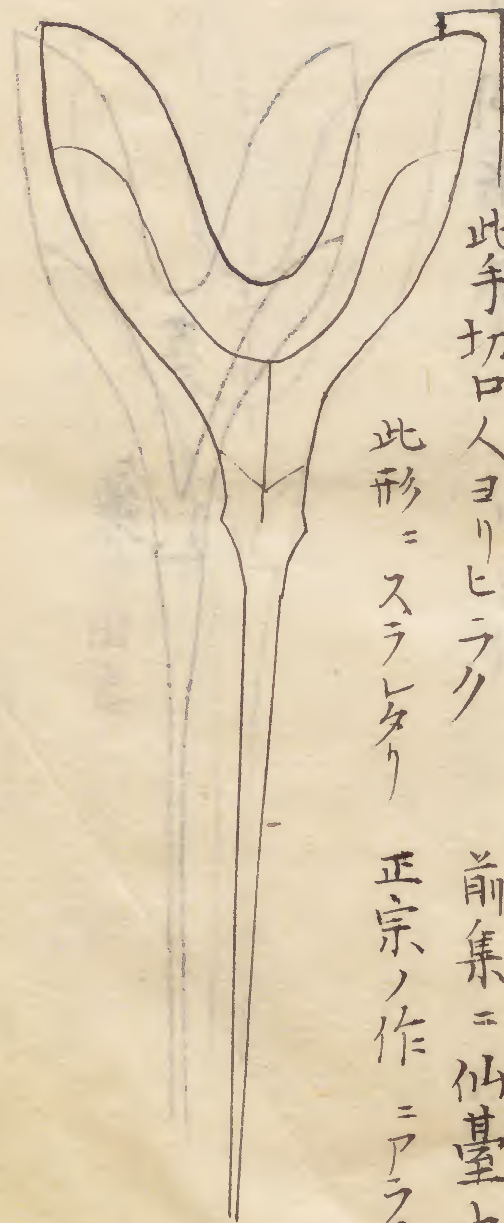 此手切口人ヨリヒラク 前集ニ仙臺
此形ニスラレタリ 正宗ノ作ニアラ